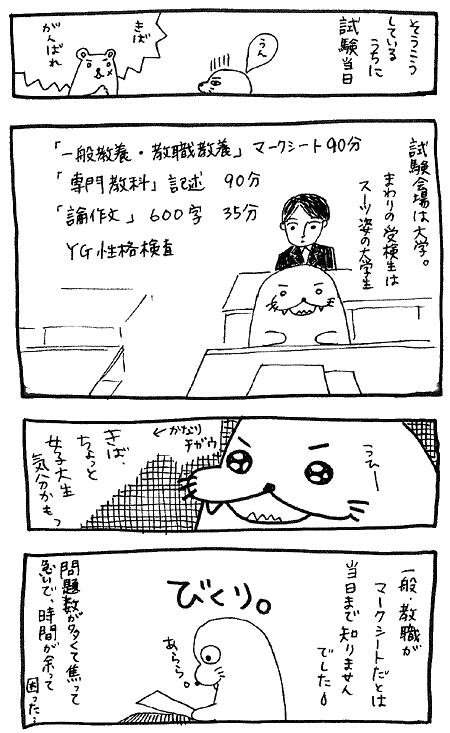 そうこう
している
うちに
試験当日
うん
きば
がんばれ
試験会場は大学。
まわりの受検生は
スーツ姿の大学生
「一般教養・教職教養」マークシート90分
「専門教科」記述 90分
「論作文」600字 35分
YG性格検査
うひー
←かなり
チガウ
きば、
ちょっと
女子大生
気分かもっ
一般・教職が
マークシートだとは
当日まで知りません
でした
びくり。
あらら。
問題数が多くて焦って
急いで、時間が余って
困った…